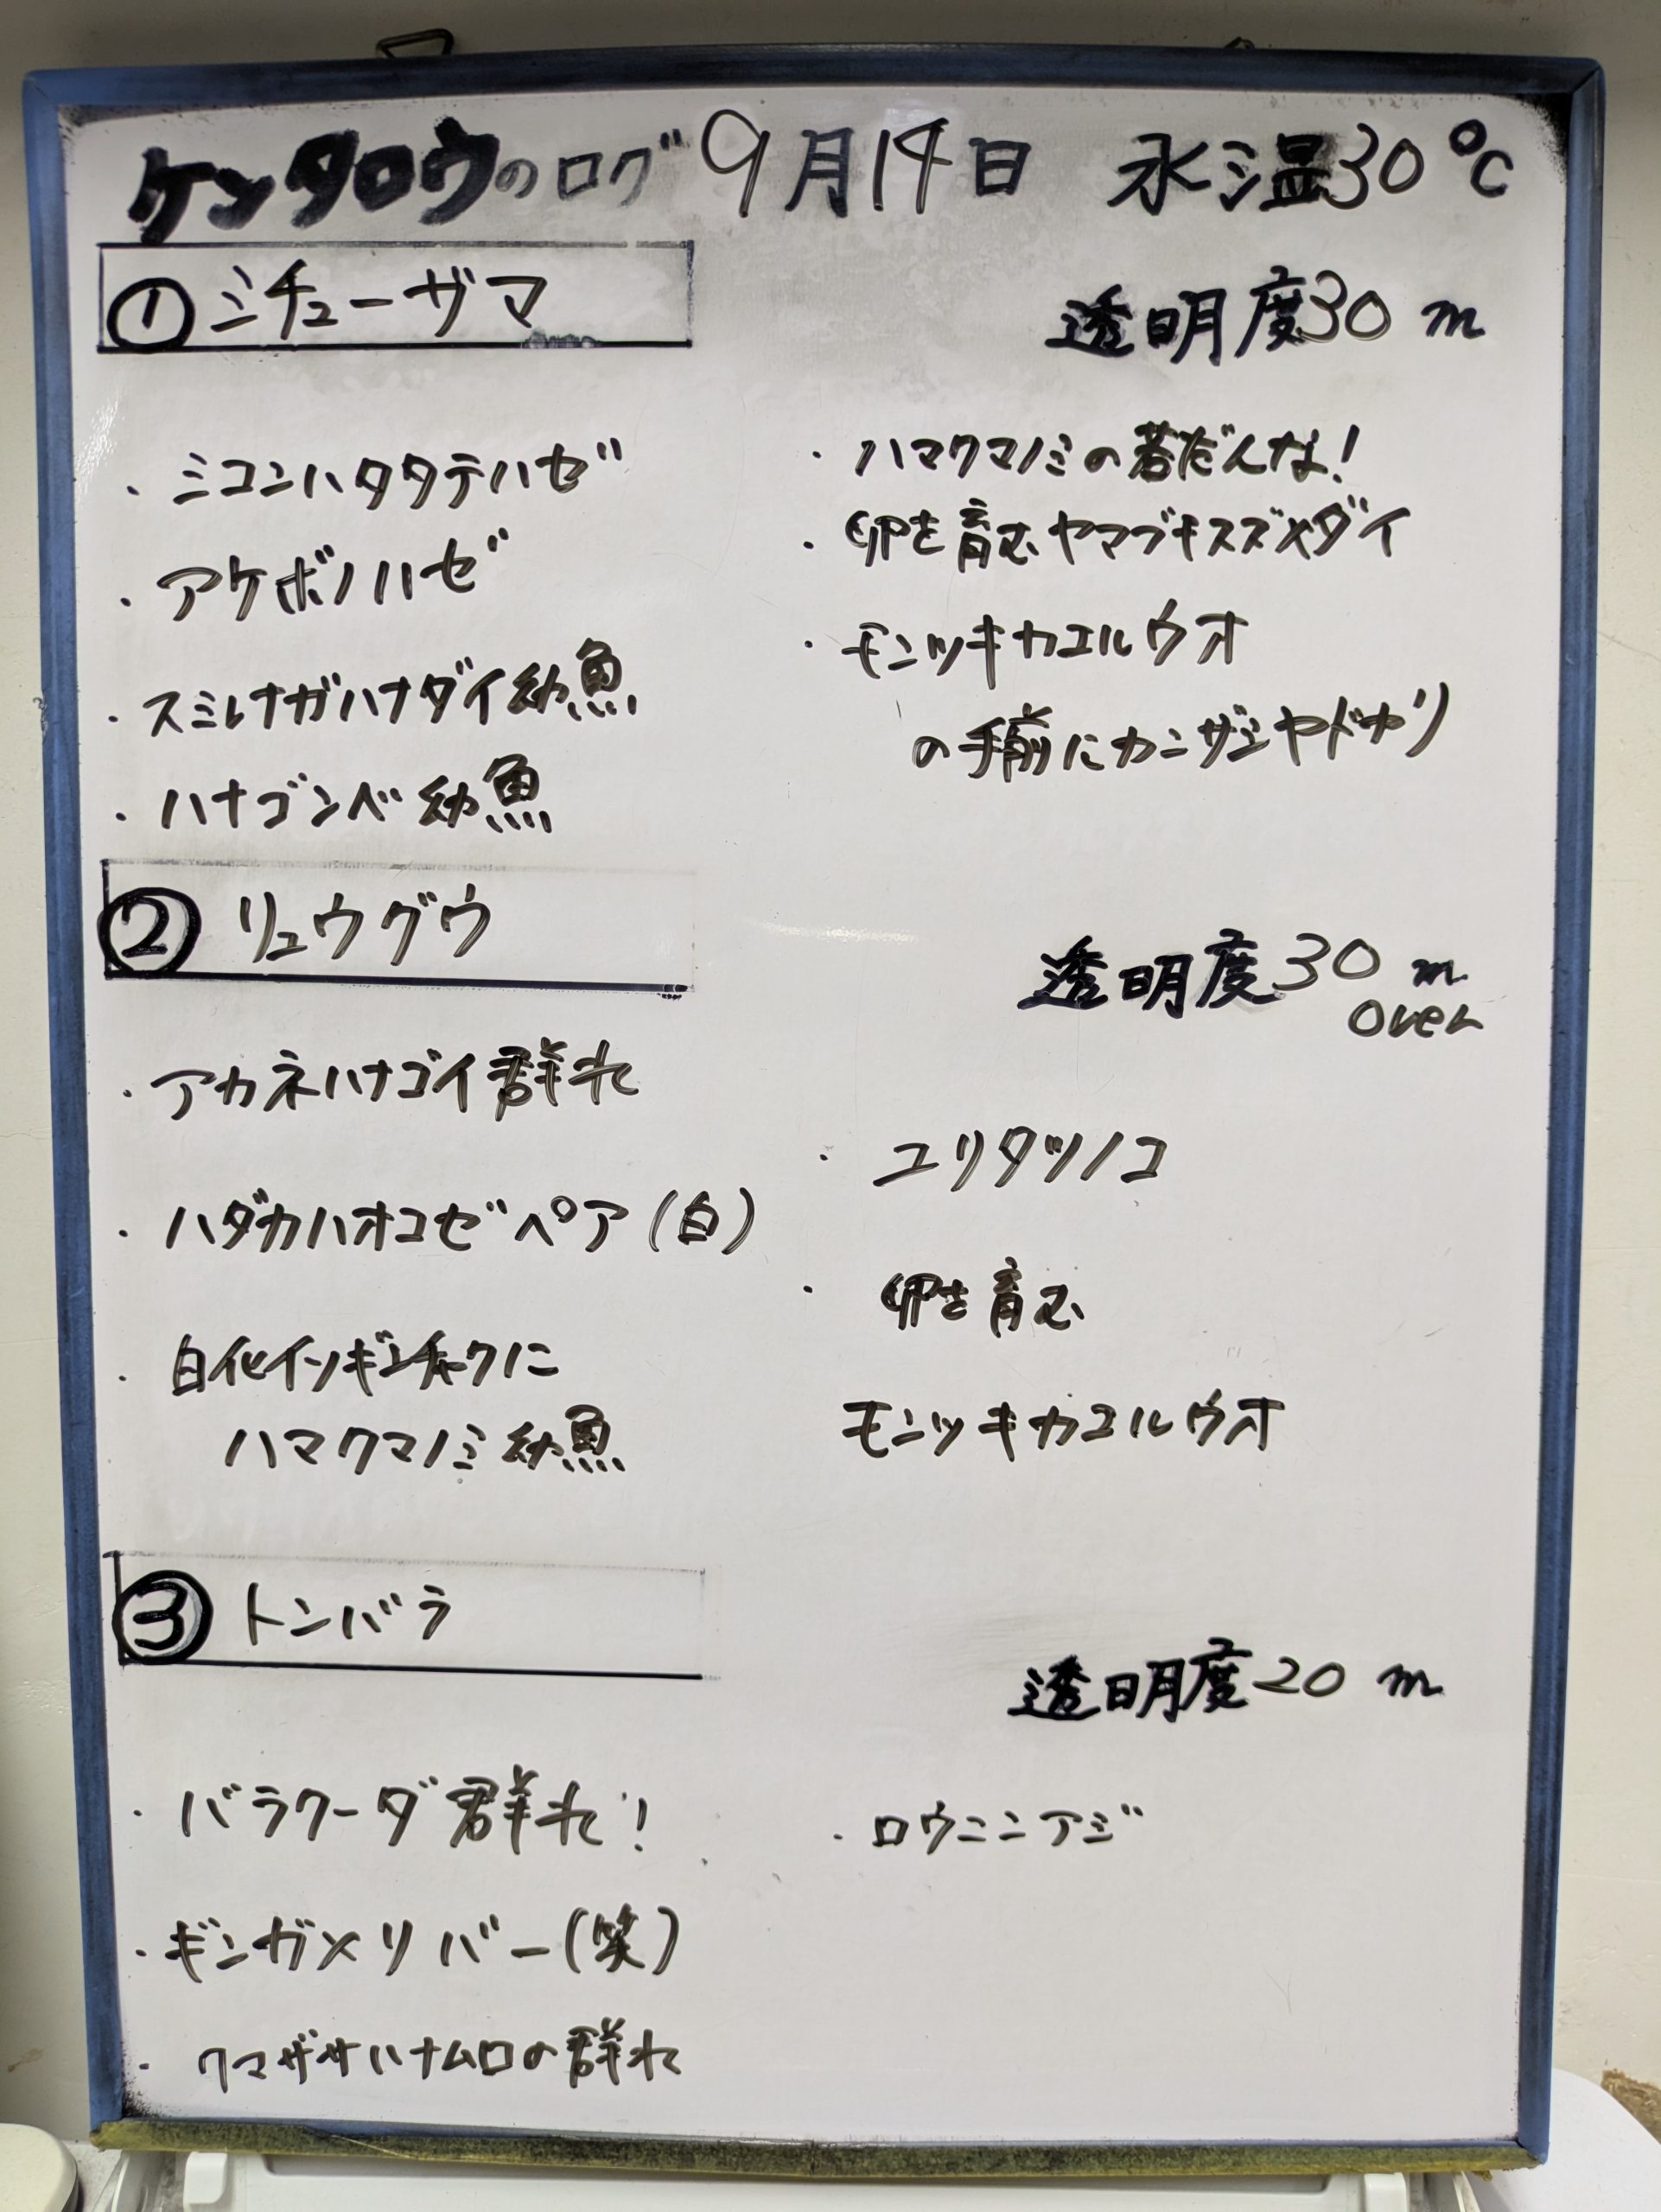 ケンタロウのログ 9月14日 水温30℃
① ミチューザマ
透明度30m
・ミコンハタタテハゼ
・アケボノハゼ
・スミレナガハナダイ幼魚
・ハナゴンベ幼魚
・ハマクマノミの若だんな!
・卵を育むヤマブキスズメダイ
・モンツキカエルウオ
の手前にカンザシヤドカリ
② リュウグウ
透明度30m
over
・アカネハナゴイ群れ
・ハダカハオコゼペア(白)
・白化イソギンチャクに
ハマクマノミ幼魚
・ユリタツノコ
・卵を育む
モンツキカエルウオ
③ トンバラ
透明度20m
・バラクーダ群れ!
・ギンガメリバー(笑)
・クマザサハナムロの群れ
・ロウニンアジ